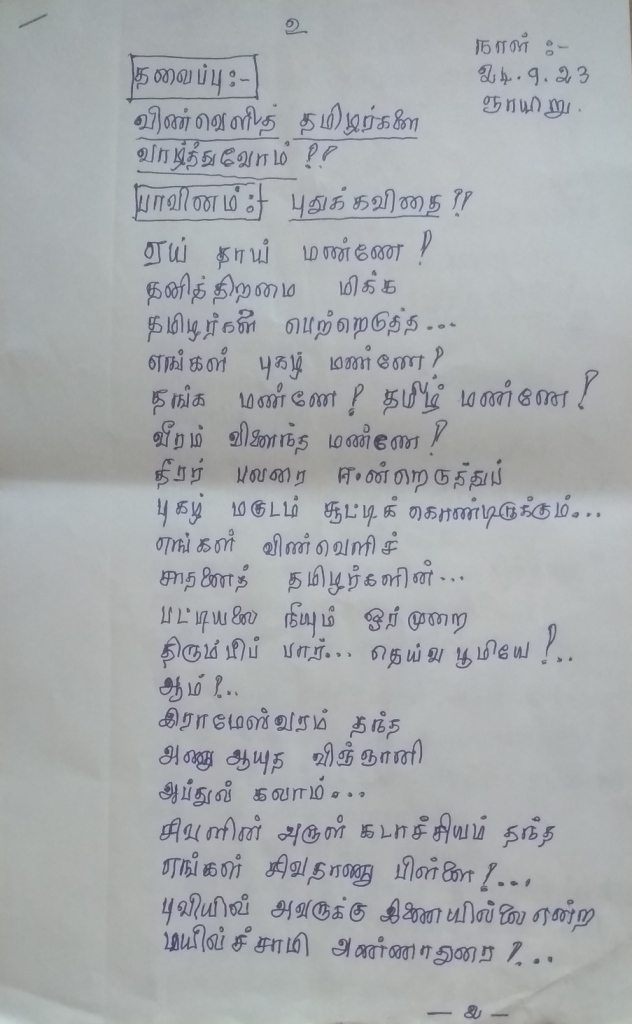 உ
நாள் :-
தலைப்பு:- 24.9.23
ஞாயிறு.
விண்வெளித் தமிழர்களை
வாழ்த்துவோம் !!
பாவினம்:- புதுக்கவிதை !!
ஏய் தாய் மண்ணே !
தனித்திறமை மிக்க
தமிழர்கள் பெற்றெடுத்த...
எங்கள் புகழ் மண்ணே!
தங்க மண்ணே! தமிழ் மண்ணே!
வீரம் விளைந்த மண்ணே!
தீரர் பலரை ஈன்றெடுத்துப்
புகழ் மகுடம் சூட்டிக் கொண்டிருக்கும்...
எங்கள் விண்வெளிச்
சாதனைத் தமிழர்களின்...
பட்டியலை நீயும் ஓர்முறை
திரும்பிப் பார்... தெய்வ பூமியே!..
ஆம்!..
இராமேஸ்வரம் தந்த
அணு ஆயுத விஞ்ஞானி
அப்துல் கலாம்...
சிவனின் அருள் கடாச்சியம் தந்த
எங்கள் சிவதாணு பிள்ளை!...
புவியில் அவருக்கு இணையில்லை என்ற
மயில்ச் சாமி அண்ணாதுரை!...
— 2 —